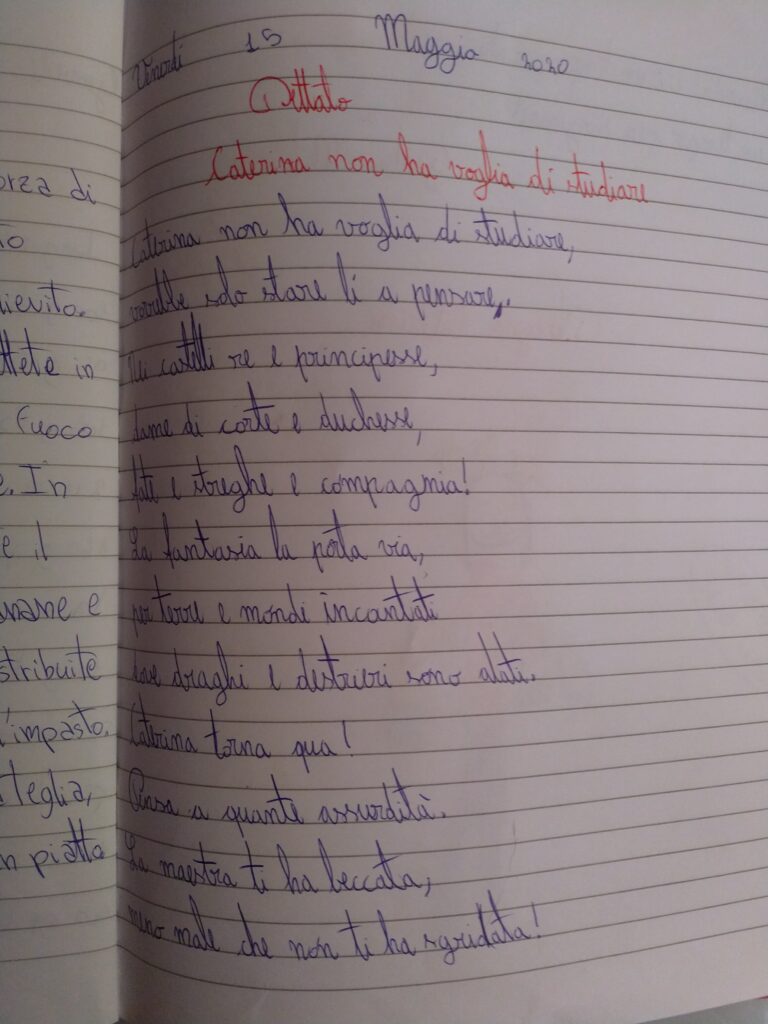 orza di
no
lievito.
ttete in
fuoco
e. In
e il
name e
stribuite
l'impasto.
teglia,
n piatto
Venerdì 15 Maggio 2020
Dettato
Caterina non ha voglia di studiare
Caterina non ha voglia di studiare,
vorrebbe solo stare lì a pensare,.
Nei castelli re e principesse,
dame di corte e duchesse,
fate e streghe e compagnia!
La fantasia la porta via,
per terre e mondi incantati
dove draghi e destrieri sono alati.
Caterina torna qua!
Pensa a quante assurdità.
La maestra ti ha beccata,
meno male che non ti ha sgridata!